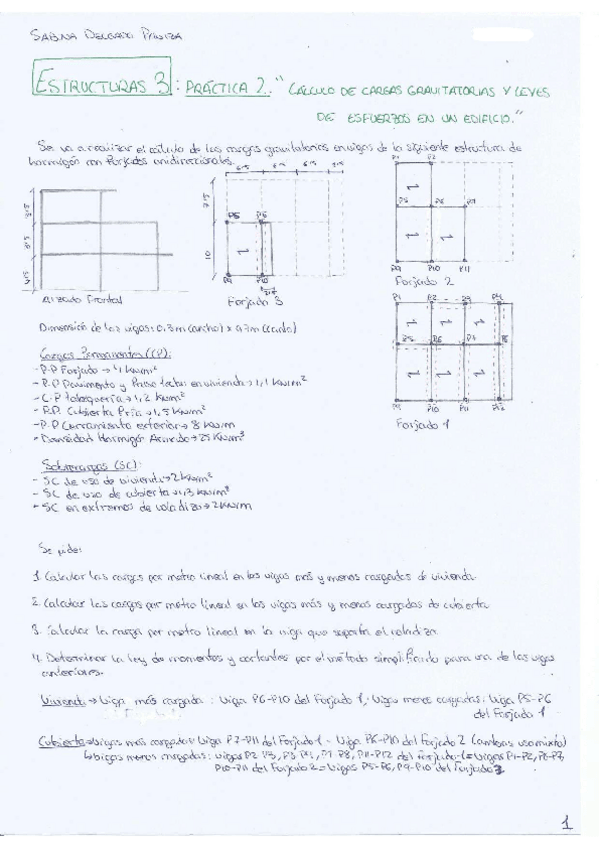 SABINA DELGADO
ESTRUCTURAS 3: PRÁCTICA 2. "CÁLCULO DE CARGAS GRAVITATORIAS Y LEYES
DE ESFUERZOS EN UN EDIFICIO."
Se va a realizar el cálculo de las cargas gravitatorias en vigas de la siguiente estructura de
hormigón con forjados unidireccionales.
Alzado Frontal
P5 P6
P10
Forjado 3
P1 P2
P5 P6 P7
P9 P10 P11
Forjado 2
P1 P2 P3 P4
P5 P6 P7 P8
P9 P10 P11 P12
Forjado 1
Dimensión de las vigas: 0.3m (ancho) x (canto)
Cargas Permanentes (CP):
- P.P Forjado → 4 KN/m²
- P.P Pavimento y Falso techo en vivienda → 1,1 KN/m²
- C.P tabiquería → 1,2 KN/m²
- P.P. Cubierta Fría → 1,5 KN/m²
- P.P Cerramiento exterior → 8 KN/m
- Densidad Hormigón Armado → 25 KN/m³
Sobrecargas (SC):
- SC de uso de vivienda → 2 KN/m²
- SC de uso de cubierta → KN/m²
- SC en extremos de voladizo → 2 KN/m
Se pide:
1. Calcular las cargas por metro lineal en las vigas más y menos cargadas de vivienda.
2. Calcular las cargas por metro lineal en las vigas más y menos cargadas de cubierta
3. Calcular la carga por metro lineal en la viga que soporta el voladizo.
4. Determinar la ley de momentos y cortantes por el método simplificado para una de las vigas
anteriores.
Vivienda → Viga más cargada: Viga P6-P10 del Forjado 1, Vigas menos cargadas: Viga P5-P6
del Forjado 1
Cubierta → Vigas más cargadas: Viga P7-P11 del Forjado 1 - Viga P6-P10 del Forjado 2 (ambas uso mixto)
vigas menos cargadas: vigas P2-P3, P3-P4, P7-P8, P11-P12 del forjado 1 = Vigas P1-P2, P6-P7,
P10-P11 del Forjado 2 = Vigas P5-P6, P9-P10 del Forjado 3
1